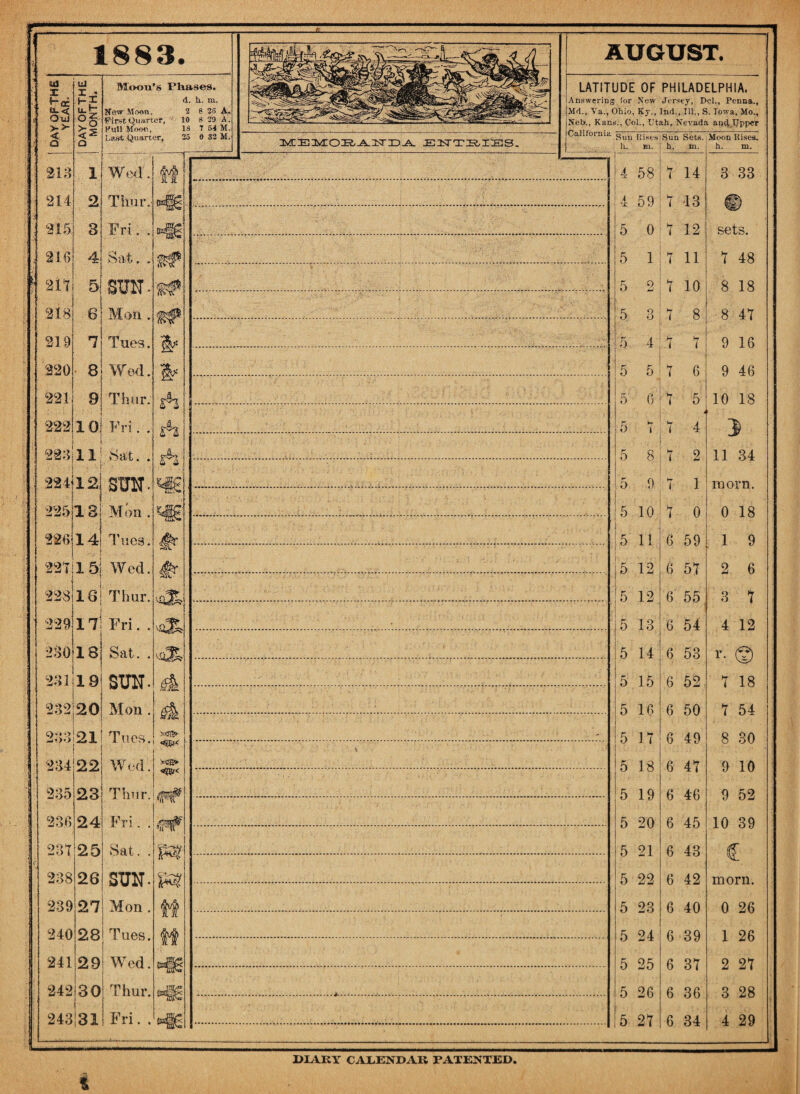 1883.
AUGUST.
DAY OF THE YEAR.
DAY OF THE MONTH.
Moon's Phases.
d. h. m.
New Moon, 2 8 25 A.
First Quarter, 10 8 29 A.
Full Moon, 18 7 54 M.
Last Quarter, 25 0 32 M.
MEMORANDA ENTRIES.
LATITUDE OF PHILADELPHIA.
Answering for New Jersey, Del., Penna.,
Md., Va., Ohio, Ky., Ind., Ill., S. Iowa, Mo.,
Neb., Kans., Col., Utah, Nevada and Upper
California
Sun Rises Sun Sets. Moon Rises.
h. m. h. m. h. m.
213 1 Wed. 4 58 7 14 3 33
214 2 Thur. 4 59 7 13
215 3 Fri. . 5 0 7 12 sets.
216 4 Sat. . 5 1 7 11 7 48
217 5 SUN. 5 2 7 10 8 18
218 6 Mon . 5 3 7 8 8 47
219 7 Tues. 5 4 7 7 9 16
220 8 Wed. 5 5 7 6 9 46
221 9 Thur. 5 6 7 5 10 18
222 10 Fri. . 5 7 7 4
223 11 Sat. . 5 8 7 2 11 34
224 12 SUN. 5 9 7 1 morn.
225 13 Mon . 5 10 7 0 0 18
226 14 Tues. 5 11 6 59 1 9
227 15 Wed. 5 12 6 57 2 6
228 16 Thur. 5 12 6 55 3 7
229 17 Fri. . 5 13 6 54 4 12
230 18 Sat. . 5 14 6 53 r.
231 19 SUN. 5 15 6 52 7 18
232 20 Mon . 5 16 6 50 7 54
233 21 Tues. 5 17 6 49 8 30
234 22 Wed. 5 18 6 47 9 10
235 23 Thur. 5 19 6 46 9 52
236 24 Fri. . 5 20 6 45 10 39
237 25 Sat. . 5 21 6 43
238 26 SUN. 5 22 6 42 morn.
239 27 Mon . 5 23 6 40 0 26
240 28 Tues. 5 24 6 39 1 26
241 29 Wed. 5 25 6 37 2 27
242 30 Thur. 5 26 6 36 3 28
243 31 Fri. . 5 27 6 34 4 29
DIARY CALENDAR PATENTED.